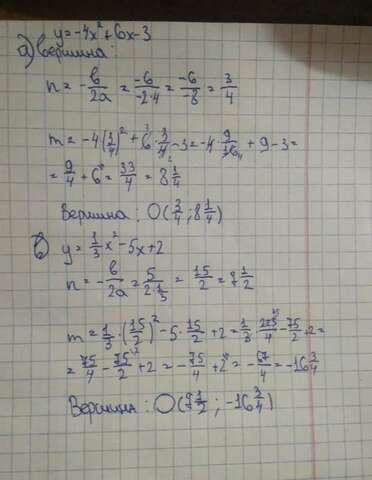 y=-4x²+6x-3
а) вершина:
n = -b/2a = -6/-2·4 = -6/-8 = 3/4
m = -4(3/4)² + 6·3/4 - 3 = -4·9/16 + 9 - 3 =
= 9/4 + 6 = 33/4 = 8 1/4
Вершина: O(3/4; 8 1/4)
в) y = 1/3 x² - 5x + 2
n = -b/2a = 5/2·1/3 = 15/2 = 7 1/2
m = 1/3·(15/2)² - 5·15/2 + 2 = 1/3·225/4 - 75/2 + 2 =
= 75/4 - 75/2 + 2 = -75/4 + 2 = -67/4 = -16 3/4
Вершина: O(7 1/2; -16 3/4)